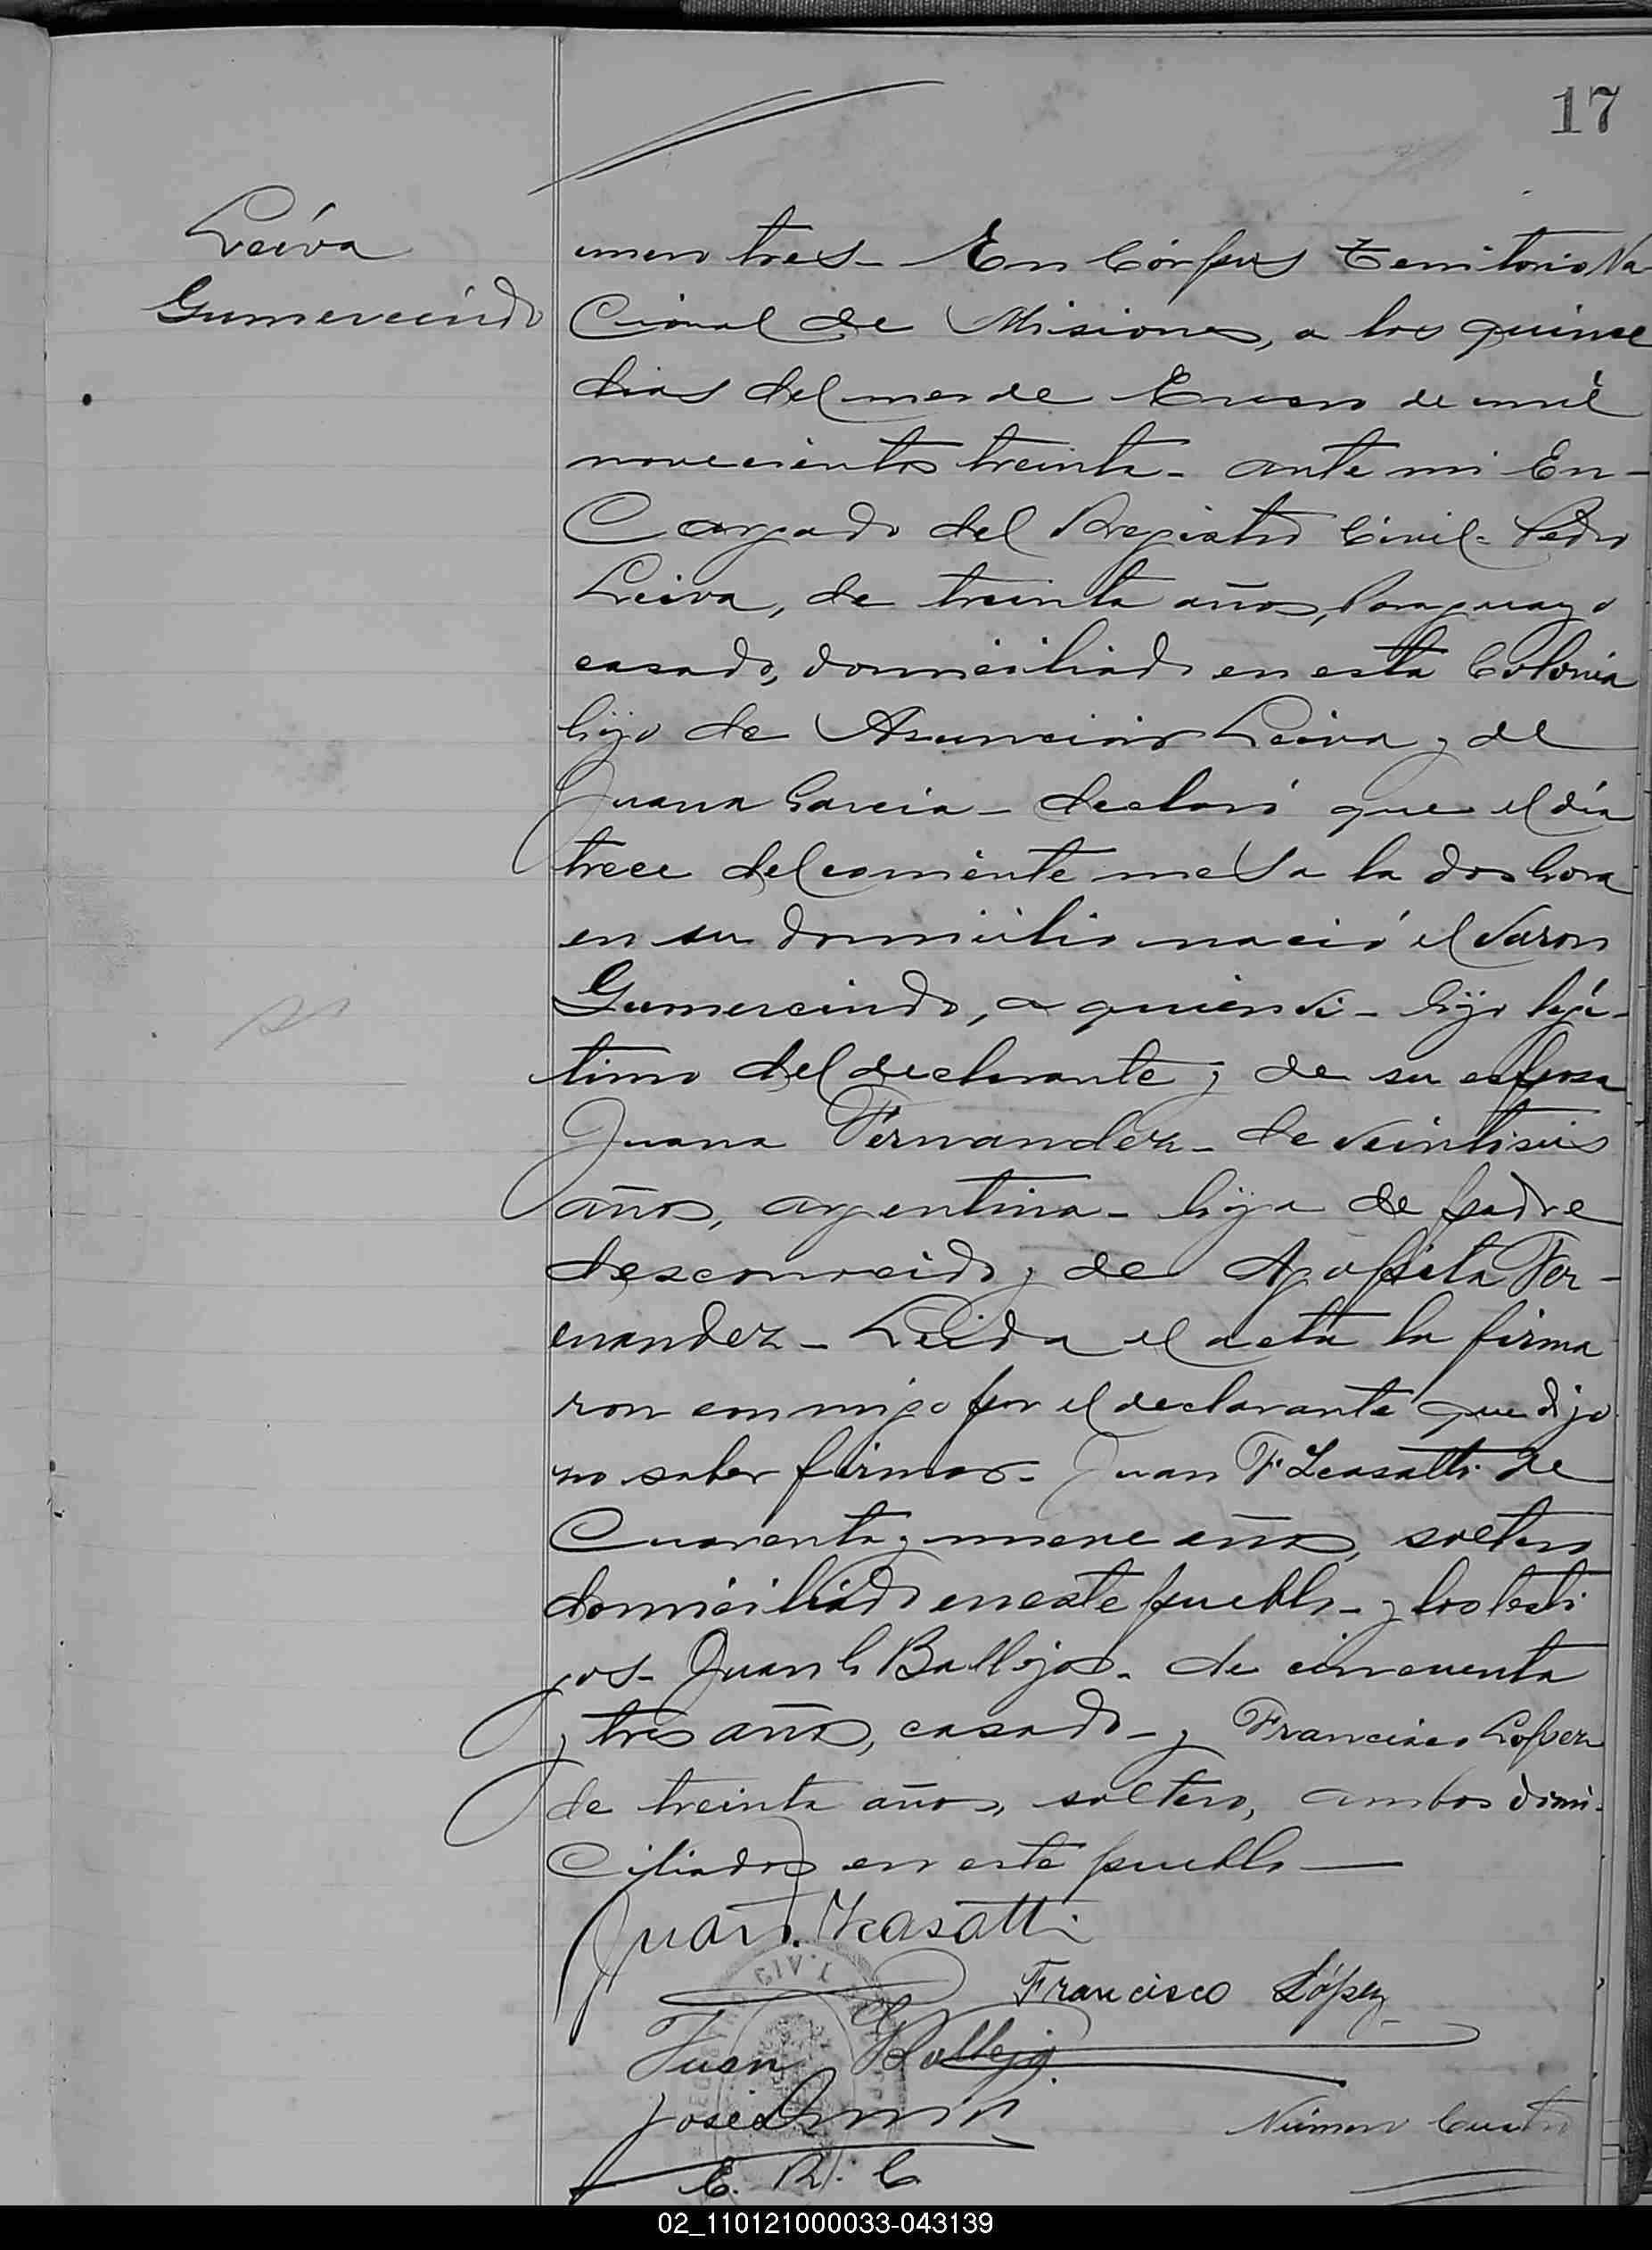 17
Leiva
Gumercindo
umero tres- En Córpus Territorio Na-
cional de Misiones, a los quince
dias del mes de Enero de mil
novecientos treinta- ante mi En-
cargado del Registro Civil- Pedro
Leiva, de treinta años, Paraguayo
casado, domiciliado en esta Colonia
hijo de Asuncion Leiva y de
Juana Garcia- declaró que el día
trece del corriente mes a la dos hora
en su domicilio nació el varon
Gumercindo, a quien vi- hijo legí-
timo del declarante y de su esposa
Juana Fernandez- de veintiseis
años, argentina- hija de padre
desconocido y de Fer-
nandez- Leida el acta la firma
ron conmigo por el declarante que dijo
no saber firmar- Juan F. de
cuarenta y nueve años, soltero
domiciliado en este pueblo- y los testi
gos- Juan Ballejos- de cincuenta
y tres años, casado- y Francisco Lopez
de treinta años, soltero, ambos domi-
ciliados en este pueblo—
Juan
Francisco López
Juan Ballejo
José
E. R. C
Número Cuatro
02_110121000033-043139